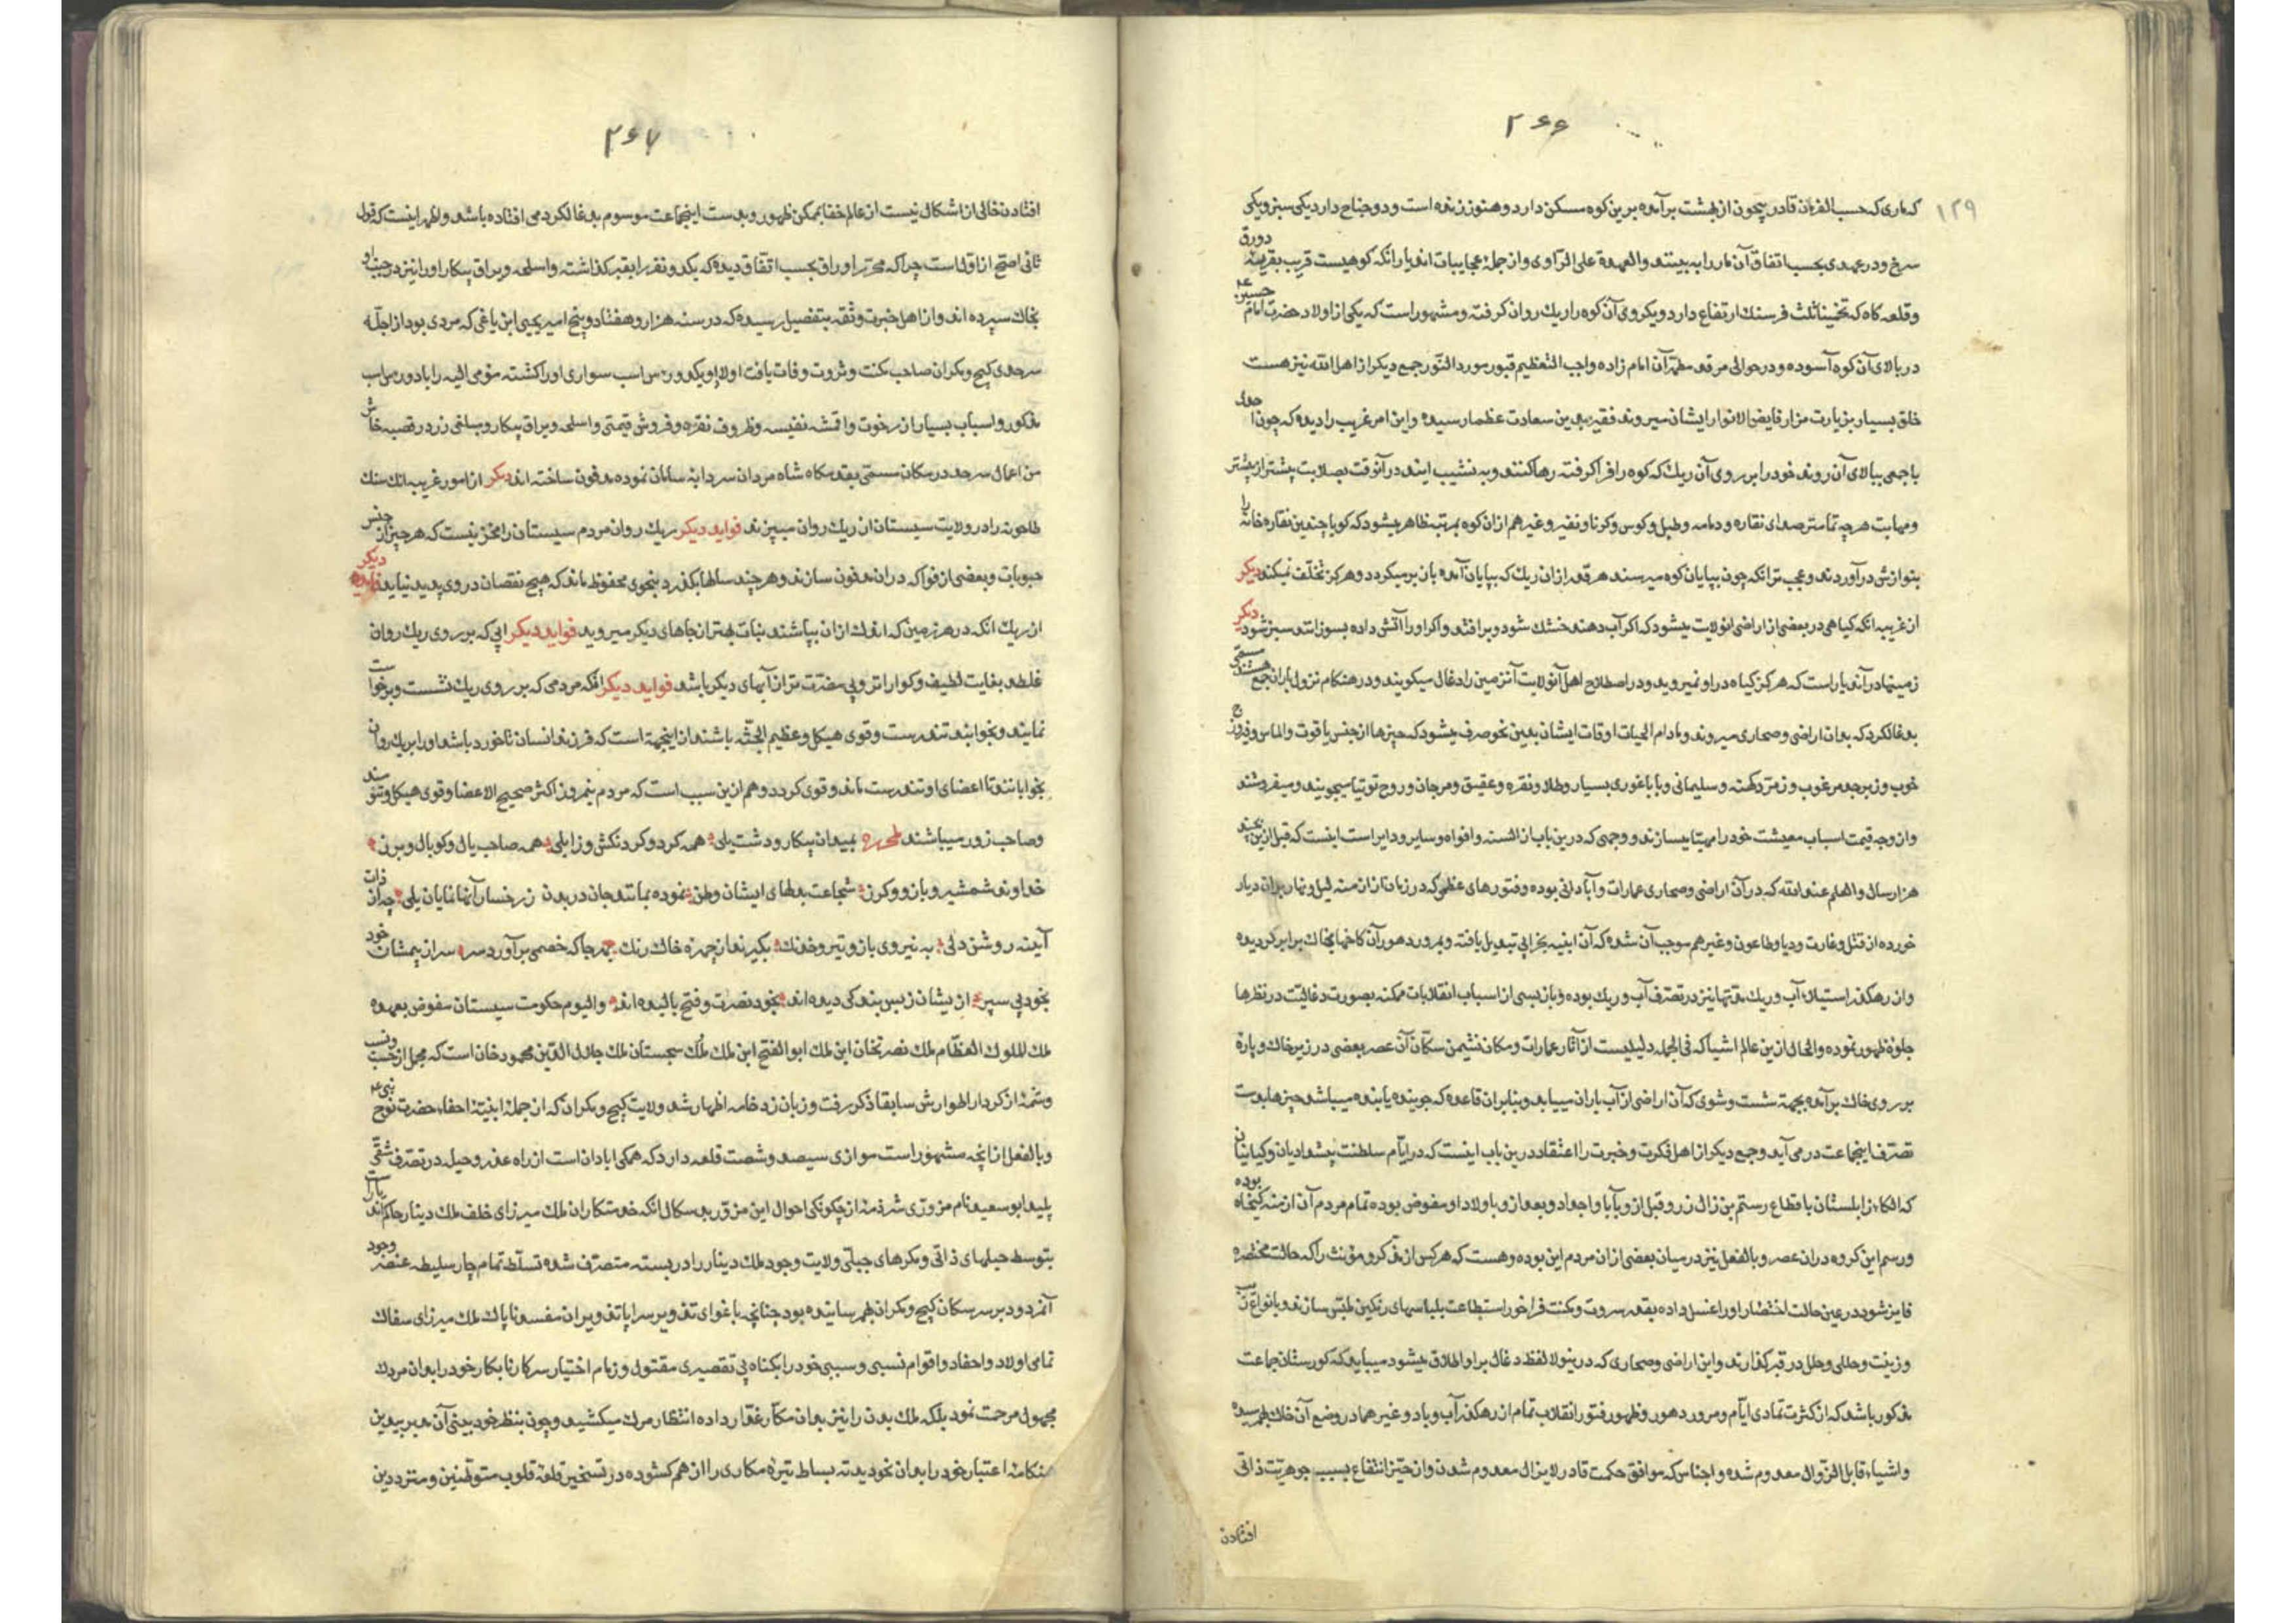 ۲۶۶
۱۲۹
که ماری که حسب الفرمان قادر بیچون از بهشت برآمده برین کوه مسکن دارد و هنوز زنده است و دو جناح دارد یکی سبز و یکی
سرخ و در عهدی بحسب اتفاق آن مار را به بینند والعهدة علی الراوی و از جمله عجایبات اندیار انکه کوهیست قریب بقریه دورق
و قلعه کاه که تخمینا ثلث فرسنك ارتفاع دارد و یکروی آن کوه را ریك روان کرفته و مشهور است که یکی از اولاد حضرت امام حسین ع
در بالای آن کوه آسوده و در حوالی مرقد مطهر آن امام زاده واجب التعظیم قبور مورد النور جمع دیکر از اهل الله نیز هست
خلق بسیار بزیارت مزار فایض الانوار ایشان میروند فقیر بدین سعادت عظما رسیده و این امر غریب را دیده که چون
با جمعی ببالای آن روند خود را بر روی آن ریك که کوه را فرا کرفته رها کنند و به نشیب ایند در آنوقت بصلابت بیشتر از بیشتر
و مهابت هر چه تمامتر صدای نقاره و دمامه و طبل و کوس و کرنا و نفیر و غیرهم از ان کوه بمرتبه ظاهر میشود که کویا چندین نقاره خانه را
بنوازش در آوردند و عجب تر انکه چون بپایان کوه میرسند هر قدر از ان ریك که بپایان آمده بازبر میکردد و هرکز تخلف نمیکند دیکر
از غریبه انکه کیاهی در بعضی از اراضی انولایت میشود که اکر آب دهند خشك شود و بر افتد و اکر او را آتش داده بسوزانند سبز شود دیکر
زمینها در آندیار است که هرکز کیاه در او نمیروید و در اصطلاح اهل آنولایت آنزمین را دغال میکویند و در هنکام نزول باران جمع هستند مسمی
بدغالکرد که بدان اراضی و صحاری میروند و مادام الحیات اوقات ایشان بدین نحو صرف میشود که چیزها از جنس یاقوت و الماس و فیروزج
خوب و زبرجد مرغوب و زمرد کهنه و سلیمانی و باباغوری بسیار و طلا و نقره و عقیق و مرجان و روح توتیا میجویند و میفروشند
و از وجه قیمت اسباب معیشت خود را مهیا میسازند و وجهی که درین باب از السنه و افواه و سایر و دایر است اینست که قبل ازین بچند
هزار سال والعلم عند الله که در آن اراضی و صحاری عمارات و آبادانی بوده و فتورهای عظمی که در زمان ازمنه لیل و نهار بران دیار
خورده از قتل و غارت و وبا و طاعون و غیرهم موجب آن شده که آن ابنیه بخرابی تبدیل یافته و بمرور دهور آن کاخها بخاك برابر کردیده
و از رهکذر استیلای آب و ریك مدتها نیز در تصرف آب و ریك بوده و باز بسی از اسباب انقلابات ممکنه بصورت دغالیت در نظرها
جلوۀ ظهور نموده و الحال ازین عالم اشیا که فی الجمله دلیلیست از آثار عمارات و مکان نشیمن سکان آن عصر بعضی در زیر خاك و پارۀ
بر روی خاك بر آمده بجهة شست و شوی که آن اراضی از آب باران مییابد و بنابران قاعده که جوینده یابنده میباشد چیزها بدست
تصرف اینجماعت در می آید و جمع دیکر از اهل فکرت و خبرت را اعتقاد درین باب اینست که در ایام سلطنت پیشدادیان و کیانیان
که الکاء زابلستان باقطاع رستم بن زال زر و قبل از و بآبا و اجداد و بعد از و باولاد او مفوض بوده تمام مردم آن ازمنه
و رسم این کروه در ان عصر و بالفعل نیز در میان بعضی از ان مردم این بوده و هست که هرکس از مذکر و مؤنث را که حالت محتضره
فایز شود در عین حالت احتضار او را غسل داده بقدر ثروت و مکنت فراخور استطاعت بلباسهای رنکین ملبس سازند و بانواع زیب
و زینت و حلی و حلل در قبر کذارند و این اراضی و صحاری که درینولا لفظ دغال بر او اطلاق میشود میباید که کورستان جماعت
مذکور باشد که از کثرت تمادی ایام و مرور دهور و ظهور فتور انقلاب تمام از رهکذر آب و باد و غیرهما در وضع آن خاك بهم رسیده
و اشیاء قابل الزوال معدوم شده و اجناس که موافق حکمت قادر لا یزال معدوم شدن و از حیز انتفاع بسبب جوهریت ذاتی
افتادن
۲۶۷
افتادن خالی از اشکال نیست از عالم خفا بممکن ظهور و بدست اینجماعت موسوم بدغالکرد می افتاده باشد و اظهر اینست که قول
ثانی اصح از اول است چرا که محرر اوراق بحسب اتفاق دیده که یکدو نفر را بقبر کذاشته و اسلحه و یراق پیکار او را نیز در جنب او
بخاك سپرده اند و از اهل خبرت و ثقه بتفصیل رسیده که در سنه هزار و هفتاد و پنج امیر یحیی ابن یاغی که مردی بود از اجلۀ
سرحدی کیچ و مکران صاحب مکنت و ثروت وفات یافت اولاد او یکدو رس اسب سواری او را کشته مومی الیه را با دو رس اسب
مذکور و اسباب بسیار از رخوت و اقمشه نفیسه و ظروف نقره و فروش قیمتی و اسلحه و یراق پیکار و مبلغی زر در قصبه خاش
من اعمال سرحد در مکان مسمی بقدمکاه شاه مردان سردابه سامان نموده مدفون ساخته اند دیکر از امور غریبه انك سنك
طاحونه را در ولایت سیستان از ریك روان میپزند فواید دیکر ریك روان مردم سیستان را مخزنیست که هر چیز از جنس
حبوبات و بعضی از فواکه در ان مدفون سازند و هر چند سالها بکذرد بنحوی محفوظ ماند که هیچ نقصان در وی پدید نیاید فایده دیکر
از ریك انکه در هر زمین که اندك از ان بپاشند نبات بهتر از جاهای دیکر میروید فواید دیکر ابی که بر روی ریك روان
غلطد بغایت لطیف و کواراتر و بی مضرت تر از آبهای دیکر باشد فواید دیکر انکه مردمی که بر روی ریك نشست و برخواست
نمایند و بخوابند تندرست و قوی هیکل و عظیم الجثه باشند از اینجهة است که فرزند انسان تا خورد باشد او را بریك روان
بخوابانند تا اعضای او تندرست ماند و قوی کردد و هم ازین سبب است که مردم نیمروز اکثر صحیح الاعضا و قوی هیکل و تنومند
و صاحب زور میباشند بمیدان پیکار و دشت یلی همه کرد و کردنکش و زابلی همه صاحب یال و کوپال و برز
خداوند شمشیر و بازو و کرز شجاعت بدلهای ایشان وطن نموده بمانند جان در بدن ز رخسار آنها نمایان یلی چه از
آینه روشن دلی به نیروی بازو و تیر و خدنك بکیرند از چهره خاك رنك بهر جا که خصمی بر آورد سر سر از پیششان خود
بخود پی سپر از ایشان ز بس بندکی دیده اند بخود نصرت و فتح بالیده اند و الیوم حکومت سیستان مفوض بعهده
ملك الملوك العظام ملك نصرتخان ابن ملك ابو الفتح ابن ملك ملك سجستان ملك جلال الدین محمود خان است که مجملی از حسب و نسب
و شمۀ از کردار اطوارش سابقا ذکر رفت و زبان زد خامه اظهار شد ولایت کیچ و مکران که از جمله ابنیۀ احفاد حضرت نوح نبی ع
و بالفعل انچه مشهور است موازی سیصد و شصت قلعه دارد که همکی ابادان است از راه غدر و حیله در تصرف شقی
پلید ابو سعید نام مزوری شرذمۀ از چکونکی احوال این مزور بد سکال انکه خدمتکاران ملك میرزای خلف ملك دینار حاکم
بتوسط حیلهای ذاتی و مکرهای جبلی ولایت وجود ملك دینار را در بسته متصرف شده تسلط تمام
آنمردود بر سر سکان کیچ و مکران بهم رسانیده بود چنانچه باغوای
تمامی اولاد و احفاد و اقوام نسبی و سببی خود را بکناه بی تقصیری مقتول و زمام اختیار سرکار نابکار خود را بدان مردك
مجهول مرحمت نمود بلکه ملك بدن را نیز بدان مکار غدار داده انتظار مرك میکشید و چون بنظر خود بینی آن مدبر بیدین
هنکامۀ اعتبار خود را بدان نحو دید ته بساط تیره مکاری را از هم کشوده در تسخیر قلعۀ قلوب متوطنین و مترددین